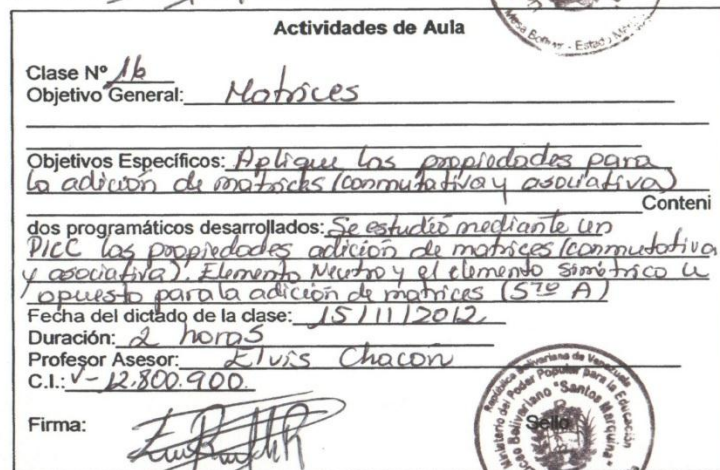 Mesa Bolívar - Estado
Actividades de Aula
Clase Nº 16
Objetivo General: Matrices
Objetivos Específicos: Aplique las propiedades para
la adición de matrices (conmutativa y asociativa)
Conteni
dos programáticos desarrollados: Se estudió mediante un
PICC las propiedades adición de matrices (conmutativa
y asociativa). Elemento Neutro y el elemento simétrico u
opuesto para la adición de matrices (5to A)
Fecha del dictado de la clase: 15/11/2012
Duración: 2 horas
Profesor Asesor: Elvis Chacon
C.I.: V-12.800.900.
Firma:
Sello
República Bolivariana de Venezuela
Ministerio del Poder Popular para la Educación
Liceo Bolivariano "Santos Marquina"